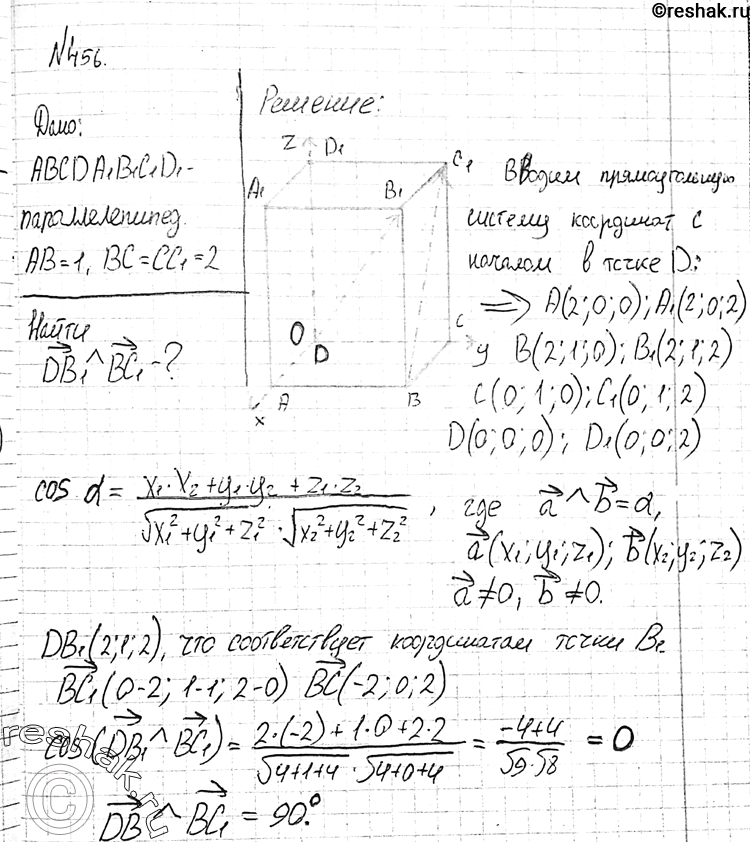 ©reshak.ru
№456.
Дано:
ABCDA₁B₁C₁D₁-
параллелепипед.
AB=1, BC=CC₁=2
Найти
DB₁^BC₁-?
Решение:
Z D₁
C₁
A₁ B₁
O
D
C
y
A B
x
Вводим прямоугольную
систему координат с
началом в точке D:
⇒ A(2;0;0); A₁(2;0;2)
B(2;1;0); B₁(2;1;2)
C(0;1;0); C₁(0;1;2)
D(0;0;0); D₁(0;0;2)
cos α = (x₁·x₂+y₁·y₂+z₁·z₂)/(√(x₁²+y₁²+z₁²)·√(x₂²+y₂²+z₂²)), где a^b=α,
a(x₁;y₁;z₁); b(x₂;y₂;z₂)
a≠0, b≠0.
DB₁(2;1;2), что соответствует координатам точки B₁
BC₁(0-2; 1-1; 2-0) BC(-2;0;2)
cos(DB₁^BC₁) = (2·(-2)+1·0+2·2)/(√(4+1+4)·√(4+0+4)) = (-4+4)/(√9·√8) = 0
DB^BC₁ = 90°.
reshak.ru
©